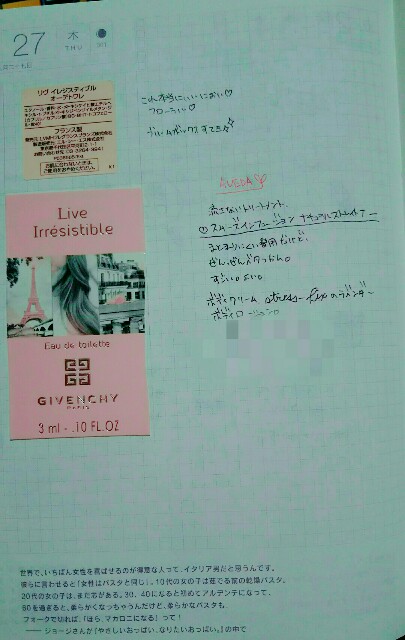 27
木
THU
リヴ イレジスティブル
オーデトワレ
フランス製
Live
Irrésistible
Eau de toilette
GIVENCHY
PARIS
3 ml - .10 FL.OZ
これ本当にいいにおい♡
フローラル♡
AVEDA
流さないトリートメント、
①スムーズインフュージョン ナチュラルストレイナー
まとまりにくい
ぜんぜんペタッとしない。
すごい。よい。
ボディクリーム stress-fix のラベンダー
ボディローション。
世界で、いちばん女性を喜ばせるのが得意な人って、イタリア男だと思うんです。
彼らに言わせると「女性はパスタと同じ」。10代の女の子は茹でる前の乾燥パスタ。
20代の女の子は、まだ芯がある。30、40になると初めてアルデンテになって、
50を過ぎると、柔らかくなっちゃうんだけど、柔らかなパスタも
フォークで切れば、「ほら マカロニになる」って！
——ジョージさんが『やさしいおっぱい、なりたいおっぱい。』の中で